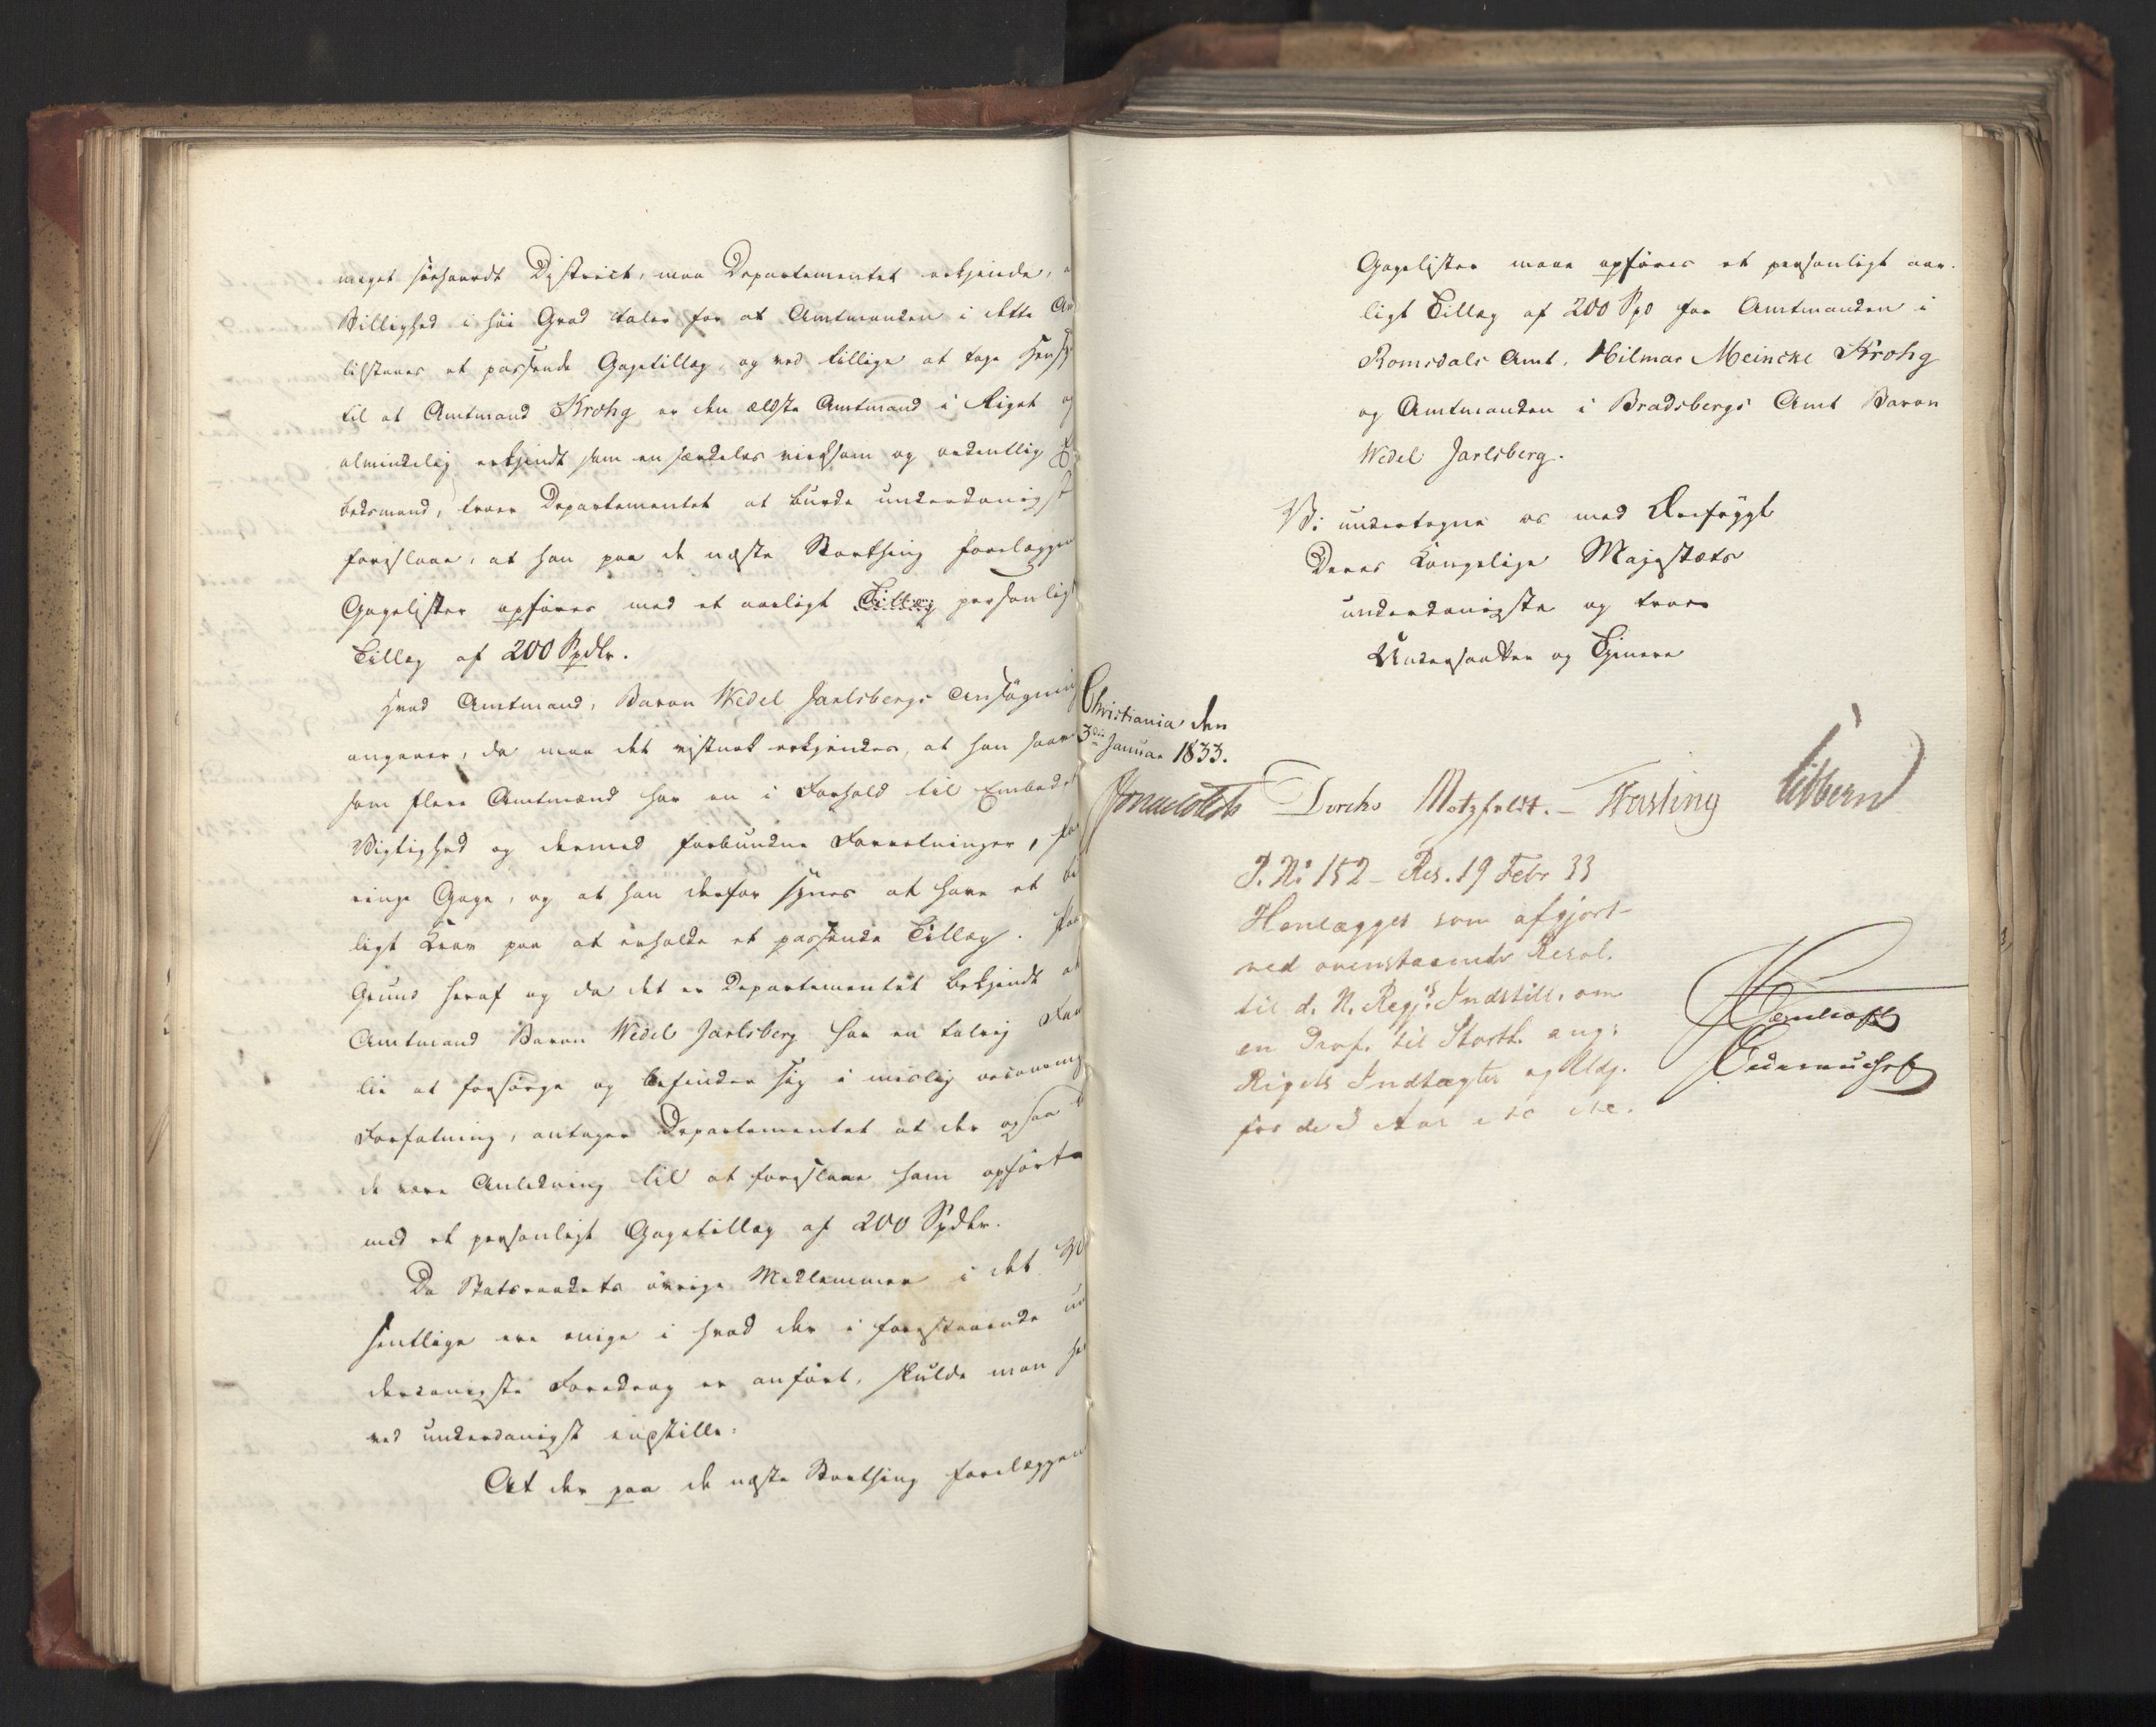 meget søehaardt District, maa Departementet erkjende,
Billighed i høi Grad taler for at Amtmanden i dette
tilstaaes et passende Gagetillæg, og ved tillige at tage Hensy
til at Amtmand Krohg er den ældste Amtmand i Riget og
almindelig erkjendt som en særdeles virksom og ordentlig
bedsmand, troer Departementet at burde underdanigst
foreslaae, at han paa de næste Storthing forelæggen
Gagelister opføres med et aarligt Tillæg personligt
Tillæg af 200 Spdlr.
Hvad Amtmand, Baron Wedel Jarlsbergs Ansøgning
angaaer, da maa det vistnok erkjendes, at han saavel
som flere Amtmænd har en i Forhold til Embedets
Vigtighed og dermed forbundne Forretninger,
ringe Gage, og at han derfor synes at have et bil
ligt Krav paa at erholde et passende Tillæg. Paa
Grund heraf og da det er Departementet bekjendt at
Amtmand Baron Wedel Jarlsberg har en talrig Fami
lie at forsørge og befinder sig i mislig oeconomisk
Forfatning, antager Departementet at der ogsaa
de være Anledning til at foreslaae ham opført
med et personligt Gagetillæg af 200 Spdlr.
Da Statsraadets øvrige Medlemmer i det Væ
sentlige ere enige i hvad der i forestaaende un
derdanigste Foredrag er anført, skulde man her
ved underdanigst indstille:
At der paa de næste Storthing forelæggende
Gagelister maae opføres et personligt aar-
ligt Tillæg af 200 Spd for Amtmanden i
Romsdals Amt, Hilmar Meincke Krohg
og Amtmanden i Bradsbergs Amt Baron
Wedel Jarlsberg.
Vi undertegne os med Ærefrygt
Deres Kongelige Majestæts
underdanigste og troe
Undersaatter og Tjenere
Christiania den
3die Januar 1833.
Jonas Collett Diriks Motzfeldt. - Fasting Sibbern
P. No 152 - Res. 19 Febr 33
Henlægges som afgjort
ved ovenstaaende Resol.
til d. N. Regj.s Indstill. om
en Prop. til Storth. ang:
Rigets Indtægter og Udg.
for de 3 Aar etc etc.